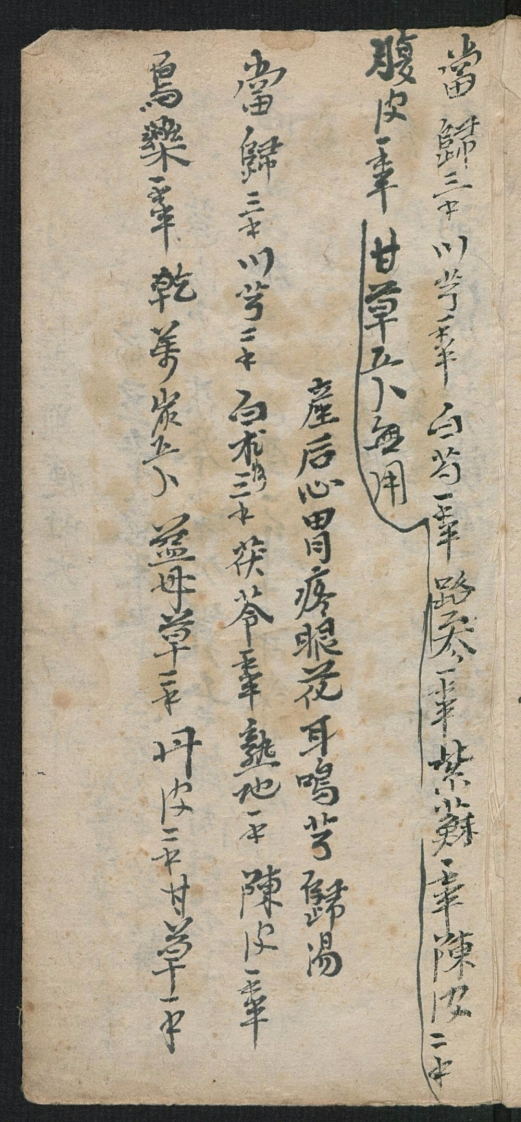 當歸三寸川芎一寸半白芍一寸半路参一寸半紫蘇一寸半陳皮二寸
腹皮一寸半甘草五卜無用
產后心胃疼眼花耳鳴芎歸湯
當歸三寸川芎二寸白朮三寸茯苓一寸半熟地一寸陳皮一寸半
烏藥一寸半乾姜炭五卜益母草一寸丹皮二寸甘草一寸